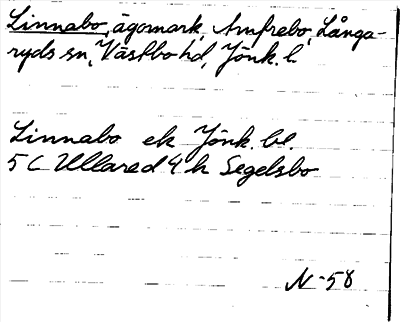 Linnabo, ägomark, Amfrebo, Långa-
ryds sn, Västbo hd, Jönk. l.
Linnabo ek Jönk. bl.
5 C Ullared 4 h Segelsbo
N-58